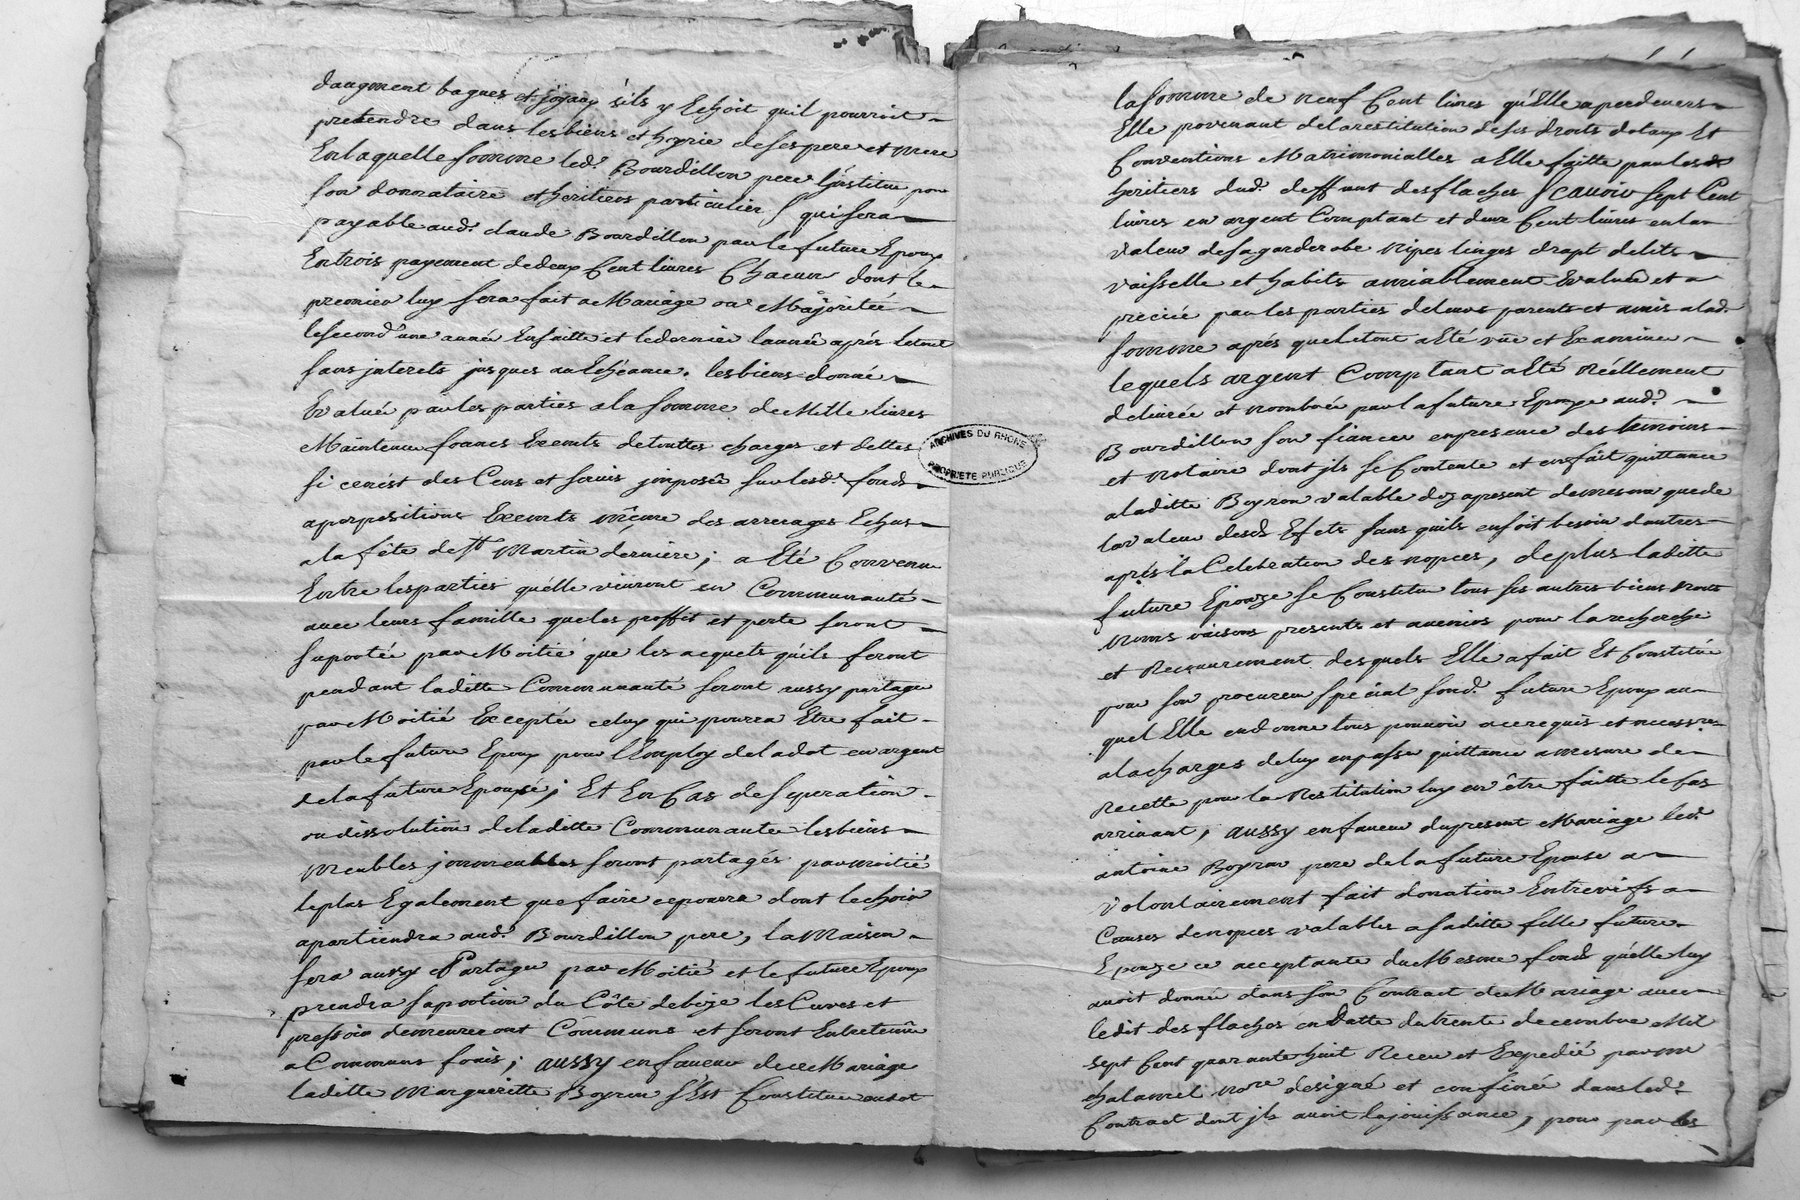 daugment bagues et joyaux s'ils y Echoit quil pourroit
pretendre dans les biens et hoyrie de ses pere et mere
En laquelle somme led. Bourdillon pere l'institue pour
son donnataire et heritiers particulier qui sera
payable aud. claude Bourdillon par le future Epoux
En trois payement de deux Cent livres Chacun dont le
premier luy sera fait a Mariage ou Majorité
le second une année Ensuitte et le dernier l'année après le tout
sans jnterets jusques au Echéance. les biens donné
Evalué par les parties a la somme de Mille livres
Maintenu francs Exemts de touttes charges et dettes
si cenest des Cens et servis jmposés sur lesd. fonds
apropositions Exemts même des arrerages Echus
a la fête de St Martin derniere; a Eté Convenu
Entre les parties quélle vivront en Communauté
avec leurs famille que les proffit et perte seront
suportée par Moitié que les acquets quils feront
pendant laditte Communauté seront aussy partagé
par Moitié Exceptée celuy qui pourra Etre fait
par le future Epoux pour l'Employ de la dot en argent
de la future Epouse; Et En Cas de separation
ou dissolution de laditte Communauté les biens
Meubles jmmeubles seront partagés par moitié
le plus Egalement que faire ce pourra dont le choix
apartiendra aud. Bourdillon pere, la Maison
sera aussy Partagé par Moitié et le future Epoux
prendra sa portion du Côte de bize les Cuves et
pressoir demeureront Communs et seront Entretenû
a Communs frais; aussy en faveur de ce Mariage
laditte Margueritte Boyron s'Est Constitue en dot
la somme de neuf Cent livres qu'Elle a perdevers
Elle provenant de la restitution de ses droits dotaux Et
Conventions Matrimonialles a Elle faitte par les
heritiers dud. deffunt desflaches Scavoir sept Cent
livres en argent Comptant et deux Cent livres en la
valeur de sa garderobe nipes linges drapt de lits
vaisselle et habits amiablement Evalué et a
preciée par les parties de leurs parents et amis a lad.
somme aprés que le tout a Eté vûe et Examinée
lequels argent Comptant a Eté réellement
delivrée et nombrée par la future Epouze aud.
Bourdillon son fiancer en presence des temoins
et notaire dont jls se Contente et en fait quittance
a laditte Boyron valable dez apresent de mesme que de
la valeur desd. Efets sans quils en soit besoin dautres
aprés la Celebration des nopces, de plus laditte
future Epouze se Constitue tous ses autres biens droits
noms raisons presents et avenirs pour la recherche
et Recouvrement desquels Elle a fait Et Constitué
pour son procureur special sond. future Epoux au
quel Elle en donne tous pouvoir a ce requis et necessres
a la charges de luy en passe quittance a mesure de
Recette pour la Restitution luy en être faitte le Cas
arrivant, aussy en faveur du present Mariage led.
antoine Boyron pere de la future Epouse a
volontairement fait donation Entrevifs a
Causes de nopces valables a saditte fille future
Epouze ce acceptante du Mesme fonds quélle luy
avoit donnée dans son Contract de Mariage avec
ledit des flaches en Datte du trente decembre Mil
sept Cent quarante huit Receu et Expedié par me
chalamel nore designé et confinée dans led.
Contract dont jls avoit la jouissance, pour par les
ARCHIVES DU RHONE
PROPRIETE PUBLIQUE